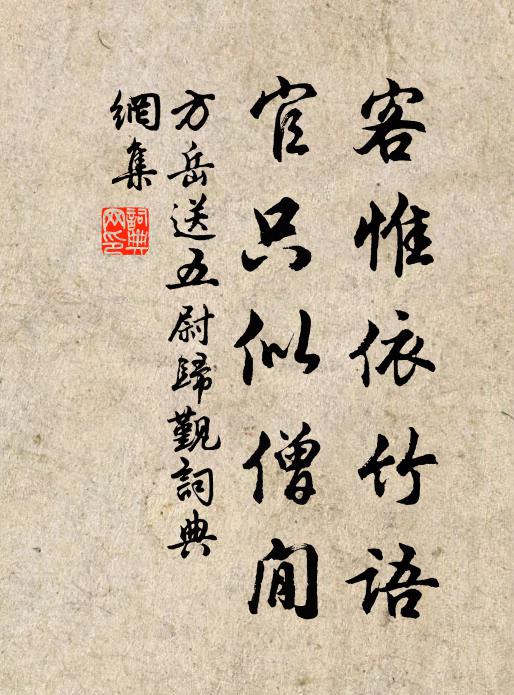 客惟依竹語
官只似僧閒
方岳送五尉歸覲詞典
網集
詞典網印